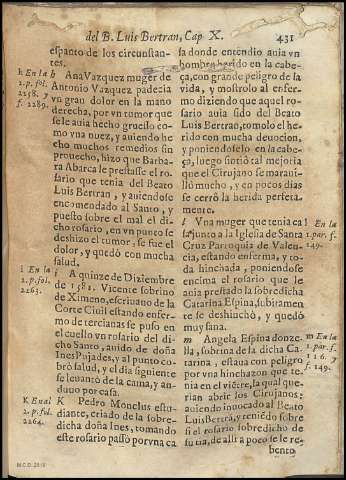 del B. Luis Bertran, Cap X. 431
espanto de los circunstan-
tes.
h En la
2. p. fol.
2158. y
f. 2289.
h Ana Vazquez muger de
Antonio Vazquez padecia
vn gran dolor en la mano
derecha, por vn tumor que
se le auia hecho gruesso como
vna nuez, y auiendo he
cho muchos remedios sin
prouecho, hizo que Barba-
ra Abarca le prestasse el ro-
sario que tenia del Beato
Luis Bertran, y auiendose
encomendado al Santo, y
puesto sobre el mal el di-
cho rosario, en vn punto se
deshizo el tumor, se fue el
dolor, y quedó con mucha
salud.
i En la
2. p. fol.
2263.
i A quinze de Diziembre
de 1581. Vicente sobrino
de Ximeno, escriuano de la
Corte Ciuil estando enfer-
mo de tercianas se puso en
el cuello vn rosario del di-
cho Santo, auido de doña
Ines Pujades, y al punto co-
bró salud, y el dia siguiente
se leuantò de la cama, y an-
duuo por casa.
K En al
2. p. fol.
2264.
K Pedro Monclus estu-
diante, criado de la sobre-
dicha doña Ines, tomando
este rosario passò por vna ca
sa donde entendio auia vn
hombre herido en la cabe-
ça, con grande peligro de la
vida, y mostrolo al enfer-
mo diziendo que aquel ro-
sario auia sido del Beato
Luis Bertran, tomolo el he-
rido con mucha deuocion,
y poniendoselo en la cabe-
ça, luego sintiò tal mejoria
que el Cirujano se maraui-
llò mucho, y en pocos dias
se cerró la herida perfecta-
mente.
l Vna muger que tenia ca
sa junto a la Iglesia de Santa
Cruz Parroquia de Valen-
cia, estando enferma, y to-
da hinchada, poniendose
encima el rosario que le
auia prestado la sobredicha
Catarina Espina, subitamen
te se deshinchò, y quedó
muy sana.
l En la
1. par.
f. 149.
m Angela Espina donze-
lla, sobrina de la dicha Ca-
tarina, estaua con peligro
por vna hinchazon que te-
nia en el vietre, la qual que-
rian abrir los Cirujanos:
auiendo inuocado al Beato
Luis Bertrã, y teniẽdo sobre
si el rosario sobredicho de
su tia, de alli a poco se le re-
bento
m En la
1. par. f.
116. y
f. 149.
M.C.D. 2018